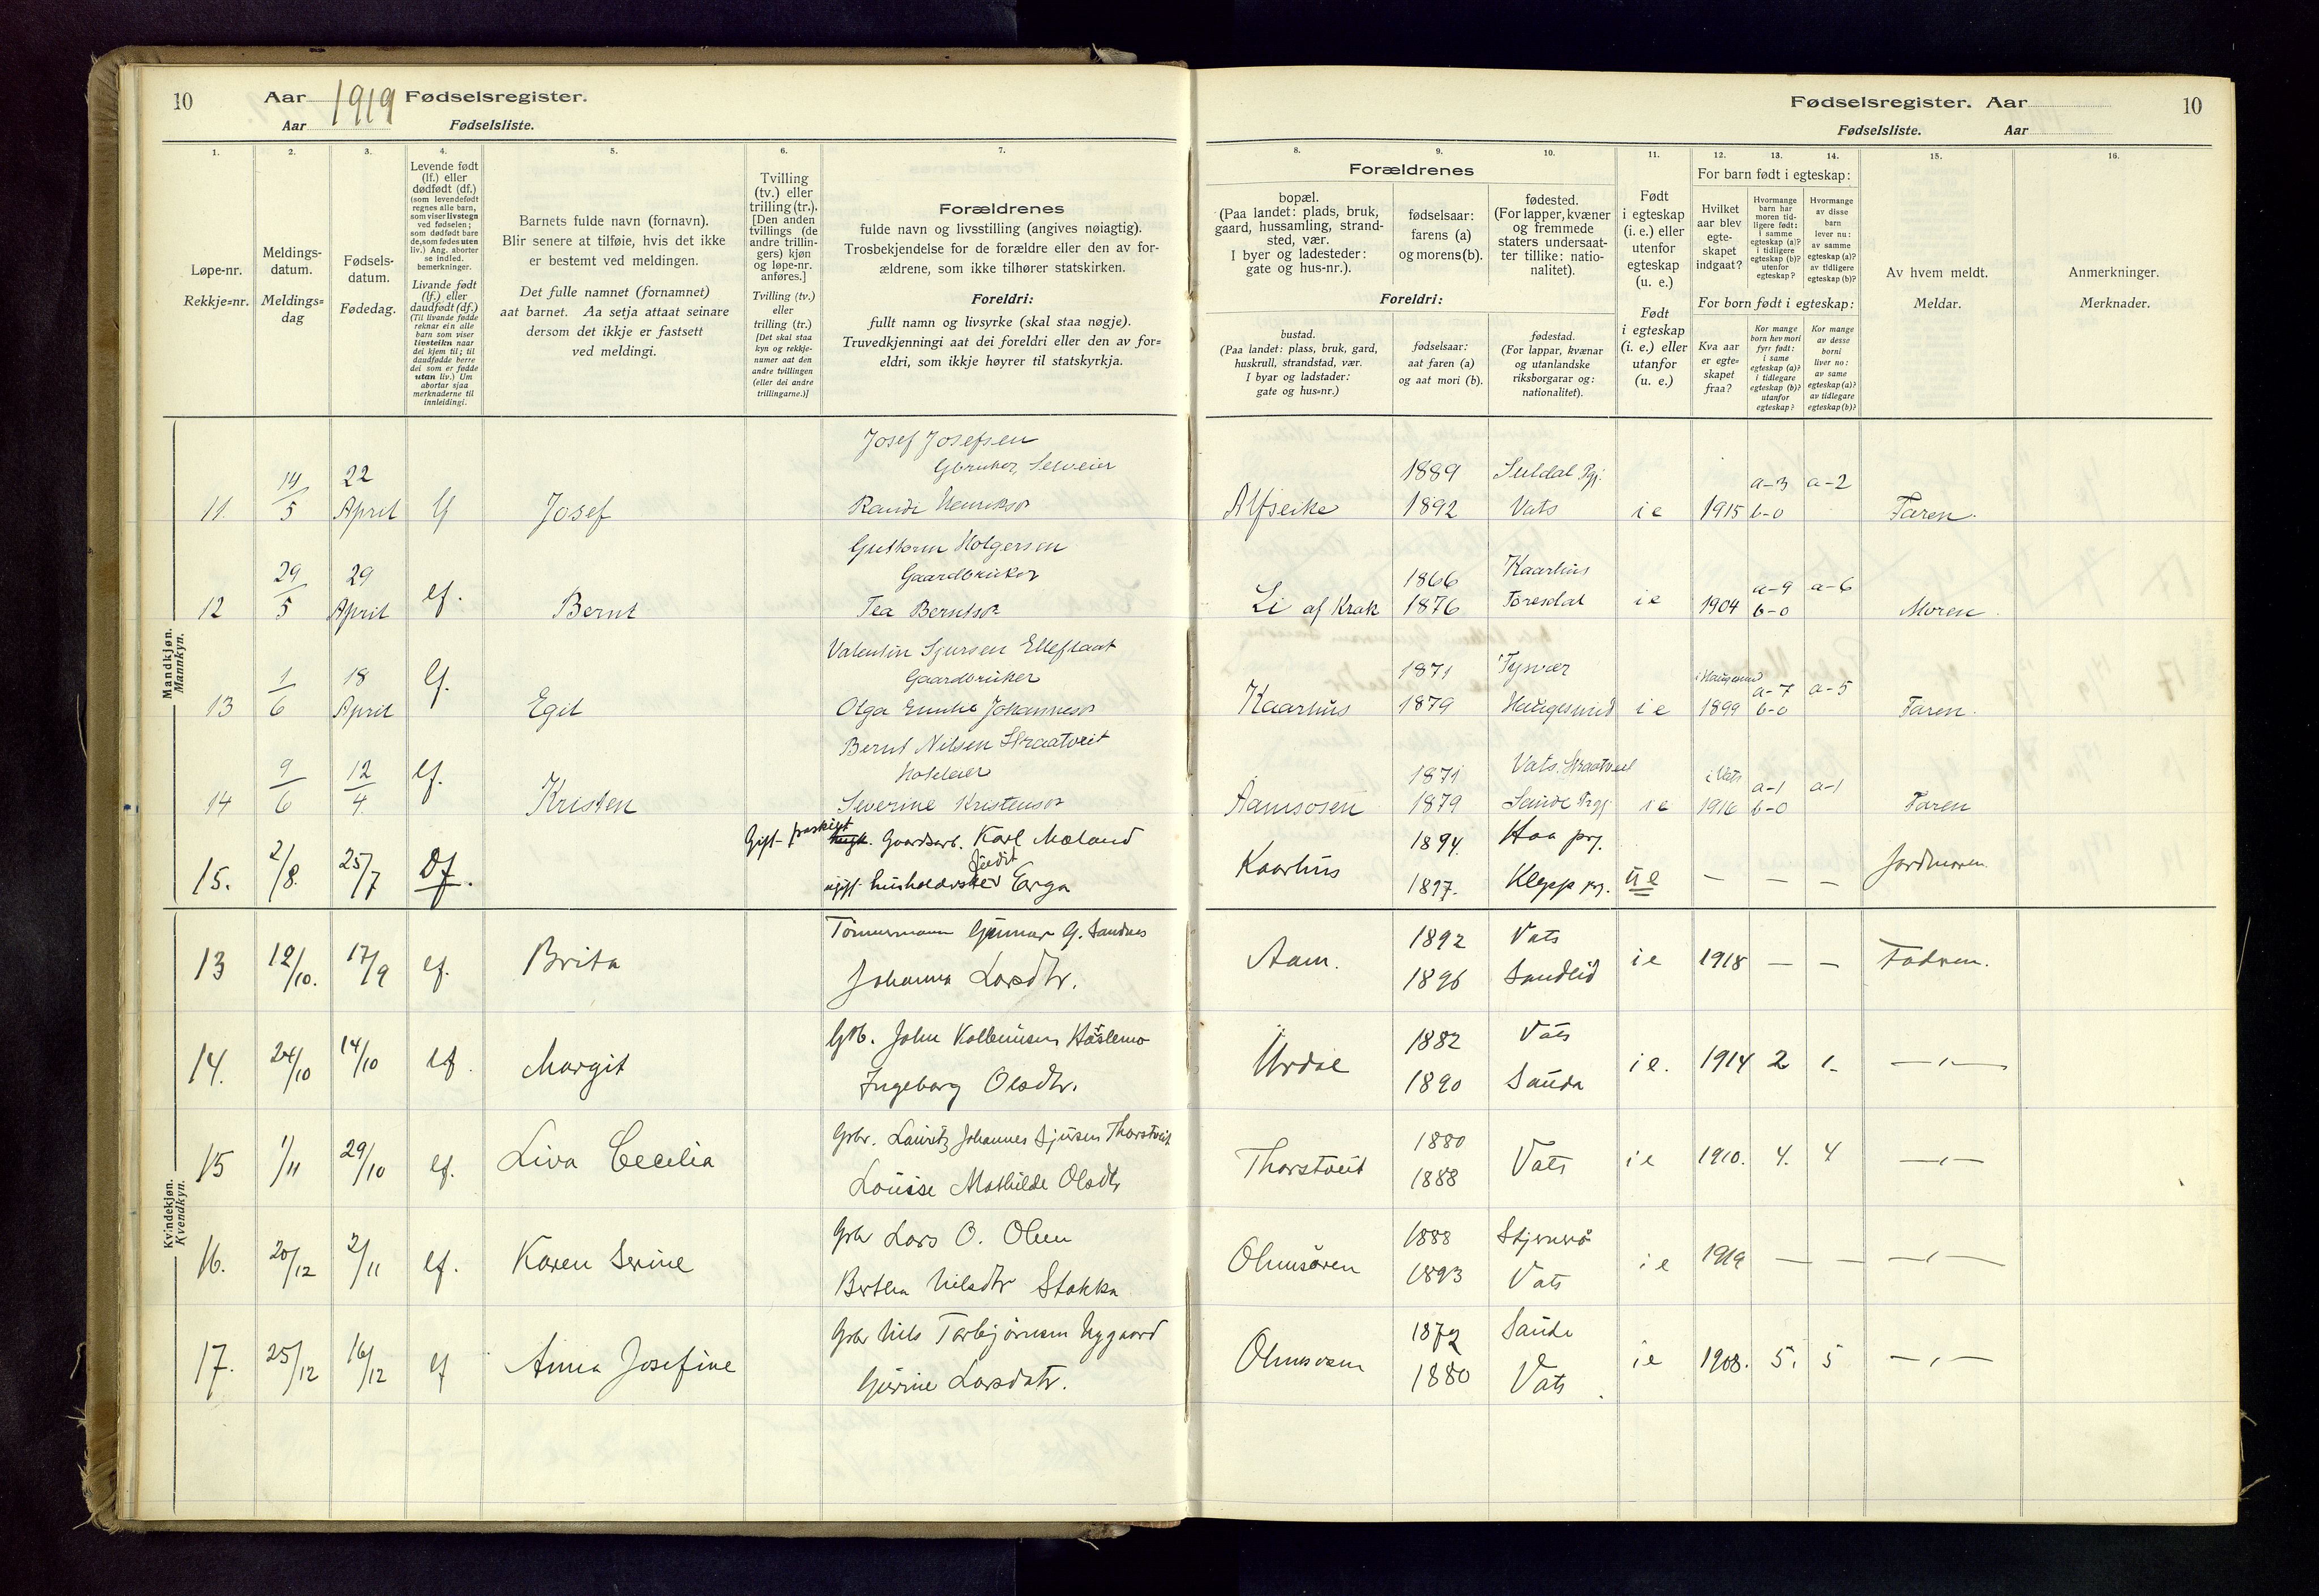 10 Aar 1919 Fødselsregister.
Aar Fødselsliste.
Fødselsregister. Aar 10
Fødselsliste. Aar
1. 2. 3. 4. 5. 6. 7. 8. 9. 10. 11. 12. 13. 14. 15. 16.
Løpe-nr.
Rekkje=nr.
Meldings-
datum.
Meldings=
dag
Fødsels-
datum.
Fødedag.
Levende født
(lf.) eller
dødfødt (df.)
(som levendefødt
regnes alle barn,
som viser livstegn
ved fødselen;
som dødfødt bare
de, som fødes uten
liv.) Ang. aborter
se indled.
bemerkninger.
Livande født
(lf.) eller
daudfødt (df.)
(Til livande fødde
reknar ein alle
barn som viser
livsteikn naar
dei kjem til; til
daudfødde berre
dei som er fødde
utan liv.) Um
abortar sjaa
merknaderne til
innleidingi.
Barnets fulde navn (fornavn).
Blir senere at tilføie, hvis det ikke
er bestemt ved meldingen.
Det fulle namnet (fornamnet)
aat barnet. Aa setja attaat seinare
dersom det ikkje er fastsett
ved meldingi.
Tvilling
(tv.) eller
trilling (tr.).
[Den anden
tvillings (de
andre trillin-
gers) kjøn
og løpe-nr.
anføres.]
Tvilling (tv.)
eller
trilling (tr.)
[Det skal staa
kyn og rekkje-
numer aat den
andre tvillingen
(eller dei andre
trillingarne.)]
Forældrenes
fulde navn og livsstilling (angives nøiagtig).
Trosbekjendelse for de forældre eller den av for-
ældrene, som ikke tilhører statskirken.
Foreldri:
fullt namn og livsyrke (skal staa nøgje).
Truvedkjenningi aat dei foreldri eller den av for=
eldri, som ikkje høyrer til statskyrkja.
Forældrenes
bopæl.
(Paa landet: plads, bruk,
gaard, hussamling, strand-
sted, vær.
I byer og ladesteder:
gate og hus-nr.).
fødselsaar:
farens (a)
og morens (b).
fødested.
(For lapper, kvæner
og fremmede
staters undersaat-
ter tillike: natio-
nalitet).
Foreldri:
bustad.
(Paa landet: plass, bruk, gard,
huskrull, strandstad, vær.
I byar og ladstader:
gate og hus=nr.)
fødselsaar:
aat faren (a)
og aat mori (b).
fødestad.
(For lappar, kvænar
og utanlandske
riksborgarar og:
nationalitet).
Født
i egteskap
(i. e.) eller
utenfor
egteskap
(u. e.)
Født
i egteskap
(i. e.) eller
utanfor
(u. e.)
For barn født i egteskap:
Hvilket
aar blev
egte-
skapet
indgaat?
Hvormange
barn har
moren tid-
ligere født:
i samme
egteskap (a)?
i tidligere
egteskap (b)?
utenfor
egteskap?
Hvormange
av disse
barn
lever nu:
av samme
egteskap (a)?
av tidligere
egteskap (b)?
For born født i egteskap:
Kva aar
er egte=
skapet
fraa?
Kor mange
born hev mori
fyrr født:
i same
egteskap (a)?
i tidlegare
egteskap (b)?
utanfor
egteskap?
Kor mange
av desse
borni
liver no:
av same
egteskap (a)?
av tidlegare
egteskap (b)?
Av hvem meldt.
Meldar.
Anmerkninger.
Merknader.
Mandkjøn.
Mannkyn.
11. 14/5 22 April lf Josef
Josef Josefsen
Gbruker, Selveier
Randi Henriksdr
Alfseike 1889 Suldal Pgj.
1892 Vats ie 1915 a-3 b-0 a-2 Faren.
12 29/5 29 April lf. Bernt
Guttorm Holgersen
Gaardbruker
Tea Berntsdr
Li af Krak 1866 Kaarhus
1876 Foresdal ie 1904 a-9 b-0 a-6 Moren.
13 1/6 18 April lf. Egil
Valentin Sjursen
Gaardbruker
Olga Emilie Johannesdr
Kaarhus 1871 Tysvær
1879 Haugesund ie i Haugesund 1899 a-7 b-0 a-5 Faren.
14 9/6 12/4. lf. Kristen
Bernt Nilsen Straatveit
Severine Kristensdr
Aamsosen 1871 Vats. Straatveit
1879 Sande Prgj. ie i Vats 1916 a-1 b-0 a-1 Faren
15. 2/8. 25/7 Df.
Gift - fraskilt Gaardsarb. Karl Moland
ugift husholderske Judit Erga
Kaarhus 1894. Haa prj.
1897. Klepp prj. ue — — — Jordmoren.
Kvindekjøn.
Kvendkyn.
13 12/10. 17/9 lf. Brita
Tømmermann Gunnar G. Sandnes
Johanna Larsdtr.
Aam. 1892 Vats
1896 Sandeid ie 1918 — — Fadren.
14. 24/10 14/10 lf. Margit
Gbr. John Kolbeinsen
Ingeborg Olsdtr.
Urdal 1882 Vats
1890 Sauda ie. 1914 2 1. —"—
15 1/11 29/10 lf. Liva Cecelia
Gbr. Lauritz Johannes Sjursen Thorstveit
Louise Mathilde Olsdtr
Thorstveit 1880
1888 Vats ie 1910. 4. 4 —"—
16. 20/12 2/11 lf. Karen Serine
Gbr Lars O. Olsen
Bertha Nilsdtr Stakka
Ølmsøren 1888 Stjernerø
1893 Vats ie 1919 — — —"—
17. 25/12 16/12 lf Anna Josefine
Gbr Nils Torbjørnsen Nygaard
Gurine Larsdatr.
Ølmsøren 1872 Sauda
1880 Vats. ie 1908. 5. 5 —"—